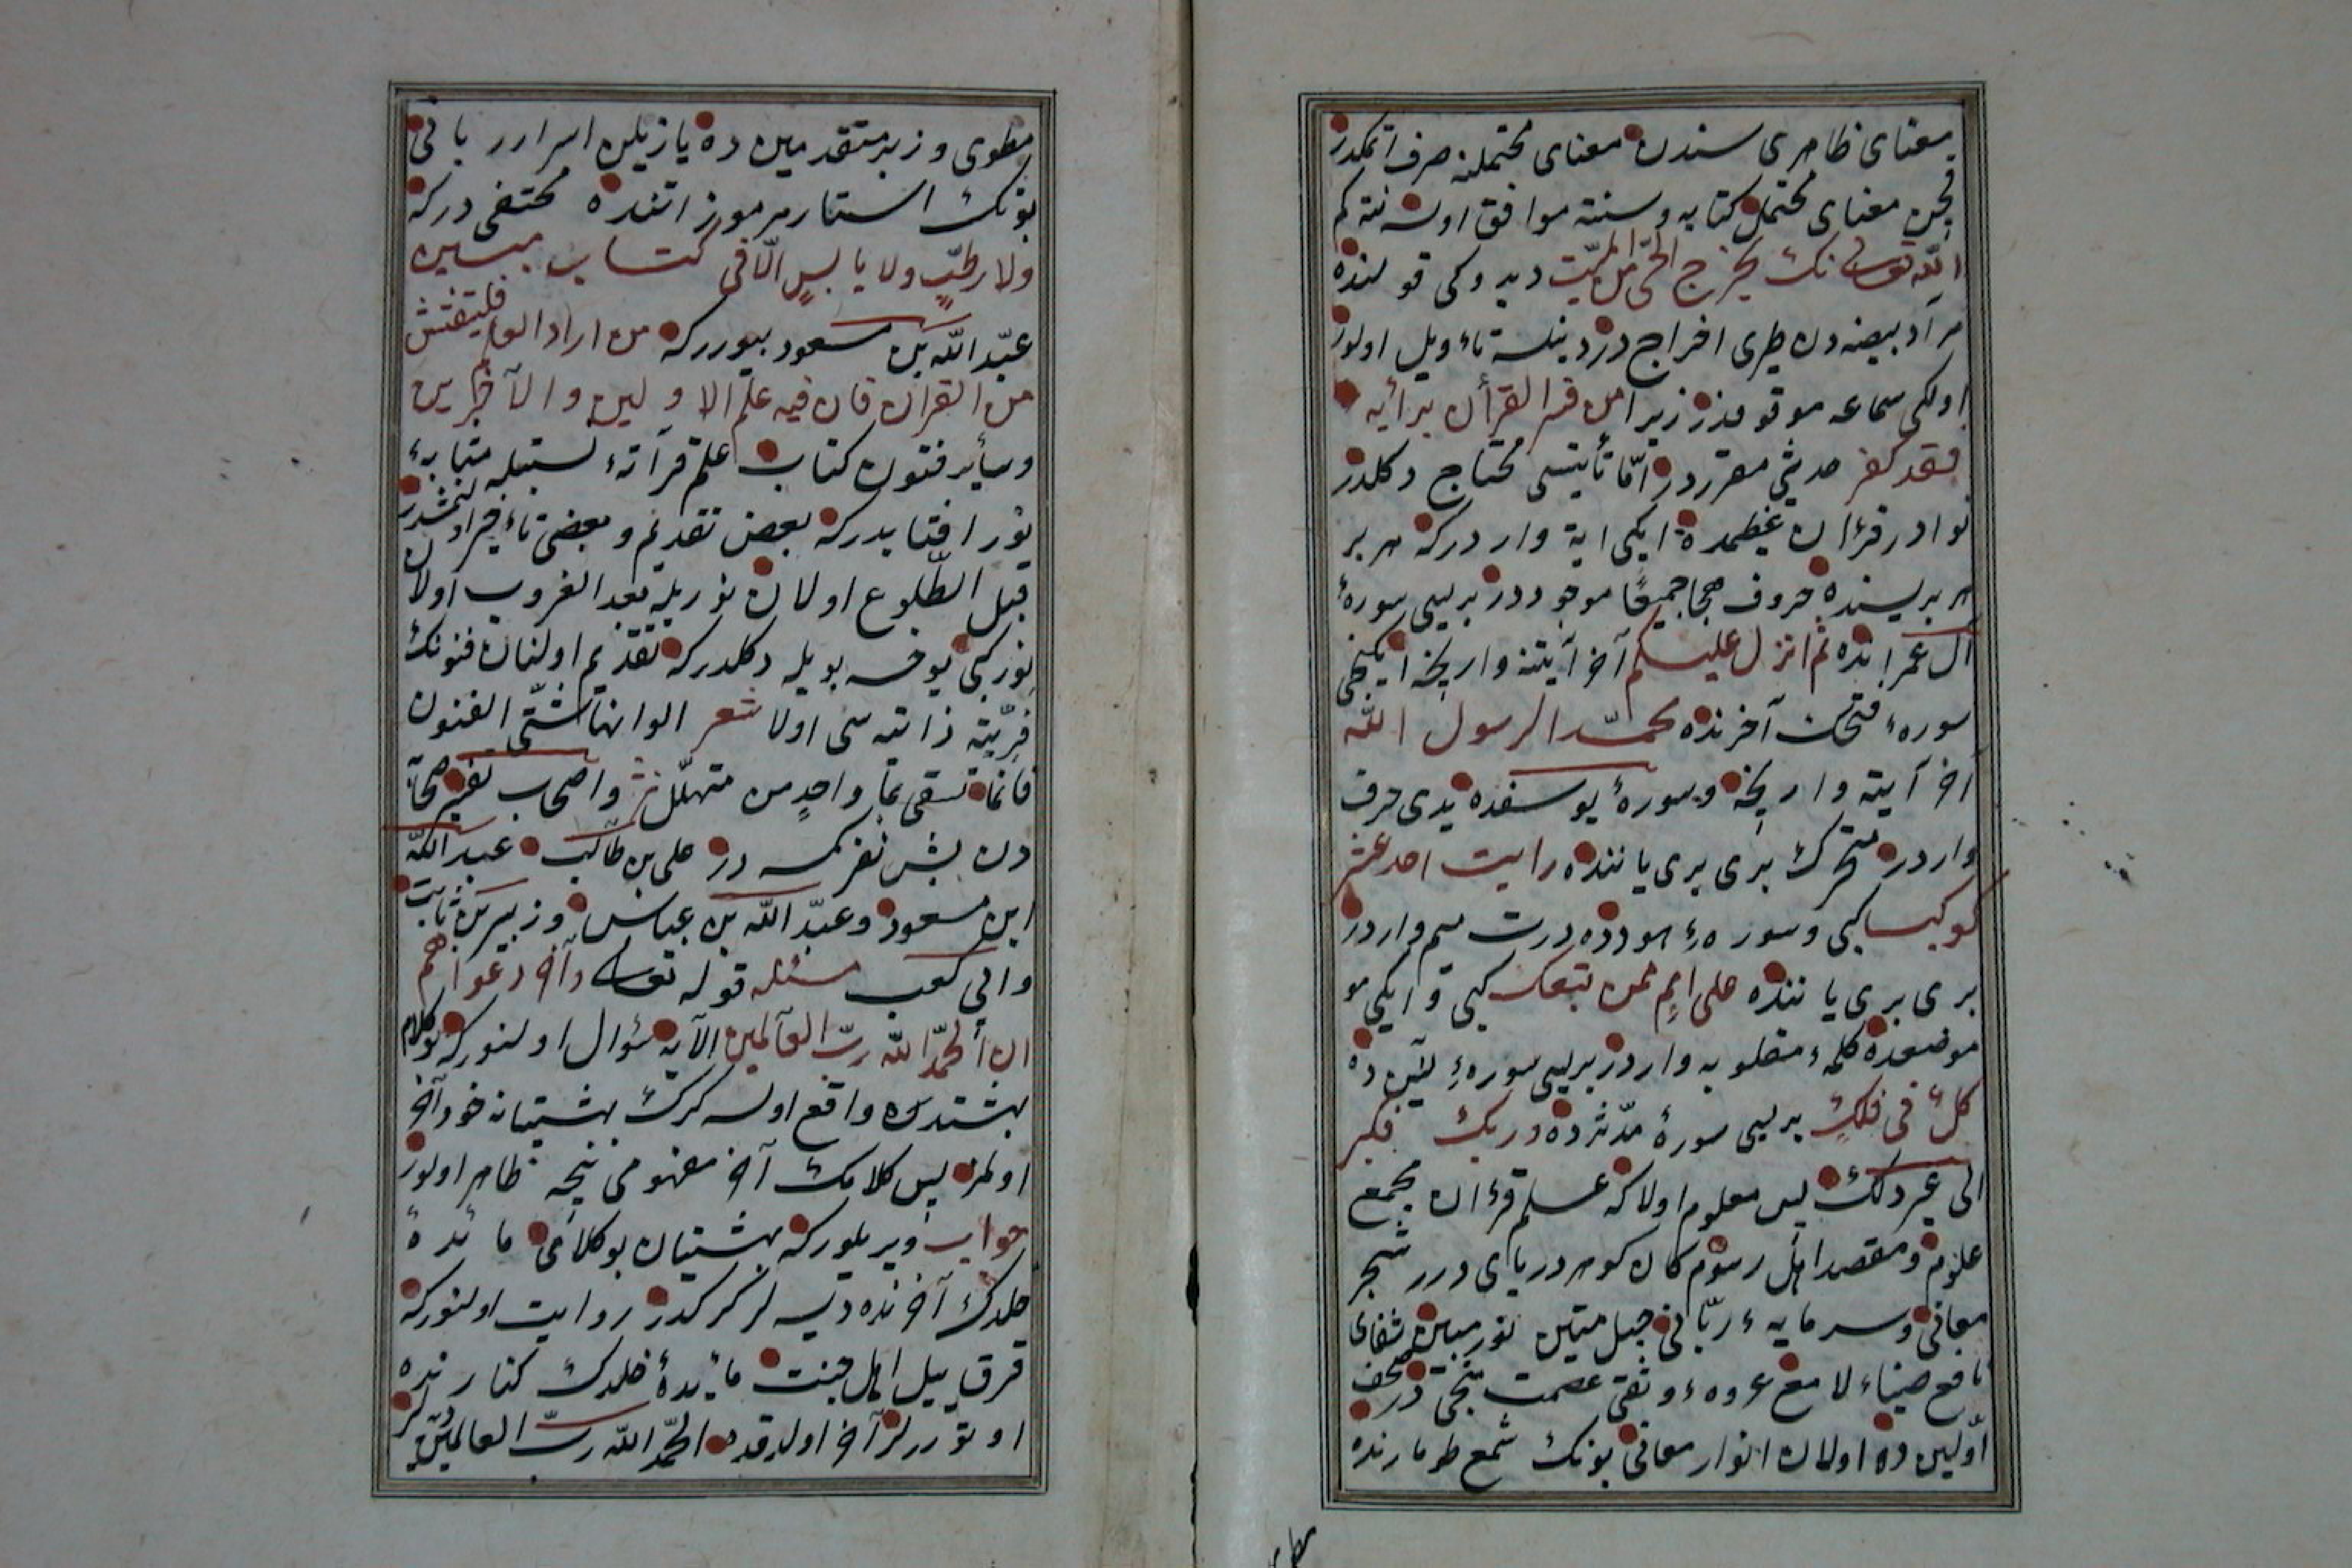 معناى ظاهرى سندن معناى محتملنه صرف اتمكدر
قچن معناى محتمل كتابه وسنته موافق اوله نته كم
الله تعالى نك يخرج الحى من الميت ديدوكى قولنده
مراد بيضه دن طيرى اخراج در دينلسه تاءويل اولور
اولكى سماعه موقوفدر زيرا من فسر القرأن برأيه
فقد كفر حديثى مقرردر امّا ثانيسى محتاج دكلدر
نوادر قرءان عظيمده ايكى اية واردركه هر بر
هر بريسنده حروف هجا جميعًا موجوددر بريسى سورهٔ
آل عمرانده ثم انزل عليكم آخر آيتنه وارنجه ايكنجى
سورهء فتحك آخرنده محمّد الرسول الله
آخر آيته وارنجه وسورهٔ يوسفده يدى حرف
واردر متحرك برى برى ياننده رايت احد عشر
كوكبا كبى وسورهءِ هودده درت ميم واردر
برى برى ياننده على اممٍ ممن معك كبى و ايكى مو
موضعده كلمهء مقلوبه واردر بريسى سورهءِ يٰسين ده
كلٌ فى فلكٍ بريسى سورهٔ مدّثرده وربك فكبر
الى غير ذلك پس معلوم اولاكه علم قرءان مجمع
علوم ومقصد اهل رسوم كان كوهر درياى درر شجر
معانى وسرمايهء ربّانى حبل متين نور مبين شفاى
نافع ضياء لامع عروهء وثقى عصمت نجىدر صحف
اوّلين ده اولان انوار معانى بونك شمع طومارنده
مطوى وزبر متقدمين ده يازيلن اسرار ربانى
بونك استار مرموزاتنده مختفى دركه
ولا رطبٍ ولا يابسٍ الّا فى كتاب مبين
عبد الله بن مسعود بيورركه من اراد العلم فليفتش
من القرآن فان فيه علم الاولين والآخرين
وسأير فنون كتاب علم قرآنهء نسبتله مثابهءِ
نور افتابدركه بعض تقديم وبعضى تاءخير اولنمشدر
قبل الطّلوع اولان نوريله بعد الغروب اولان
نور كبى يوخسه بويله دكلدركه تقديم اولنان فنونك
مزيّته ذاتيه سى اولا شعر الوانها شتّى الفنون
فانما تسقى بماٍ واحدٍ من متهلّل نثر واصحاب تفسير صحابه
دن بش نفر كمسه در على بن طالب عبد الله
ابن مسعود وعبد الله بن عباس وزبير بن ثابت
وابى كعب مسئله قوله تعالى وآخر دعواهم
ان الحمد الله ربّ العالمين الآيه سؤال اولنوركه بو كلام
بهشتده واقع اولسه كرك بهشتيانه خود آخر
اولمز پس كلامك آخر مفهومى نيجه ظاهر اولور
جواب ويريلوركه بهشتيان بو كلامى مائدهٔ
خلدك آخرنده ديسه لر كركدر روايت اولنوركه
قرق ييل اهل جنت مائدهٔ خلدك كنارنده
اوتوررلر آخر اولدقده الحمد الله ربّ العالمين ديرلر